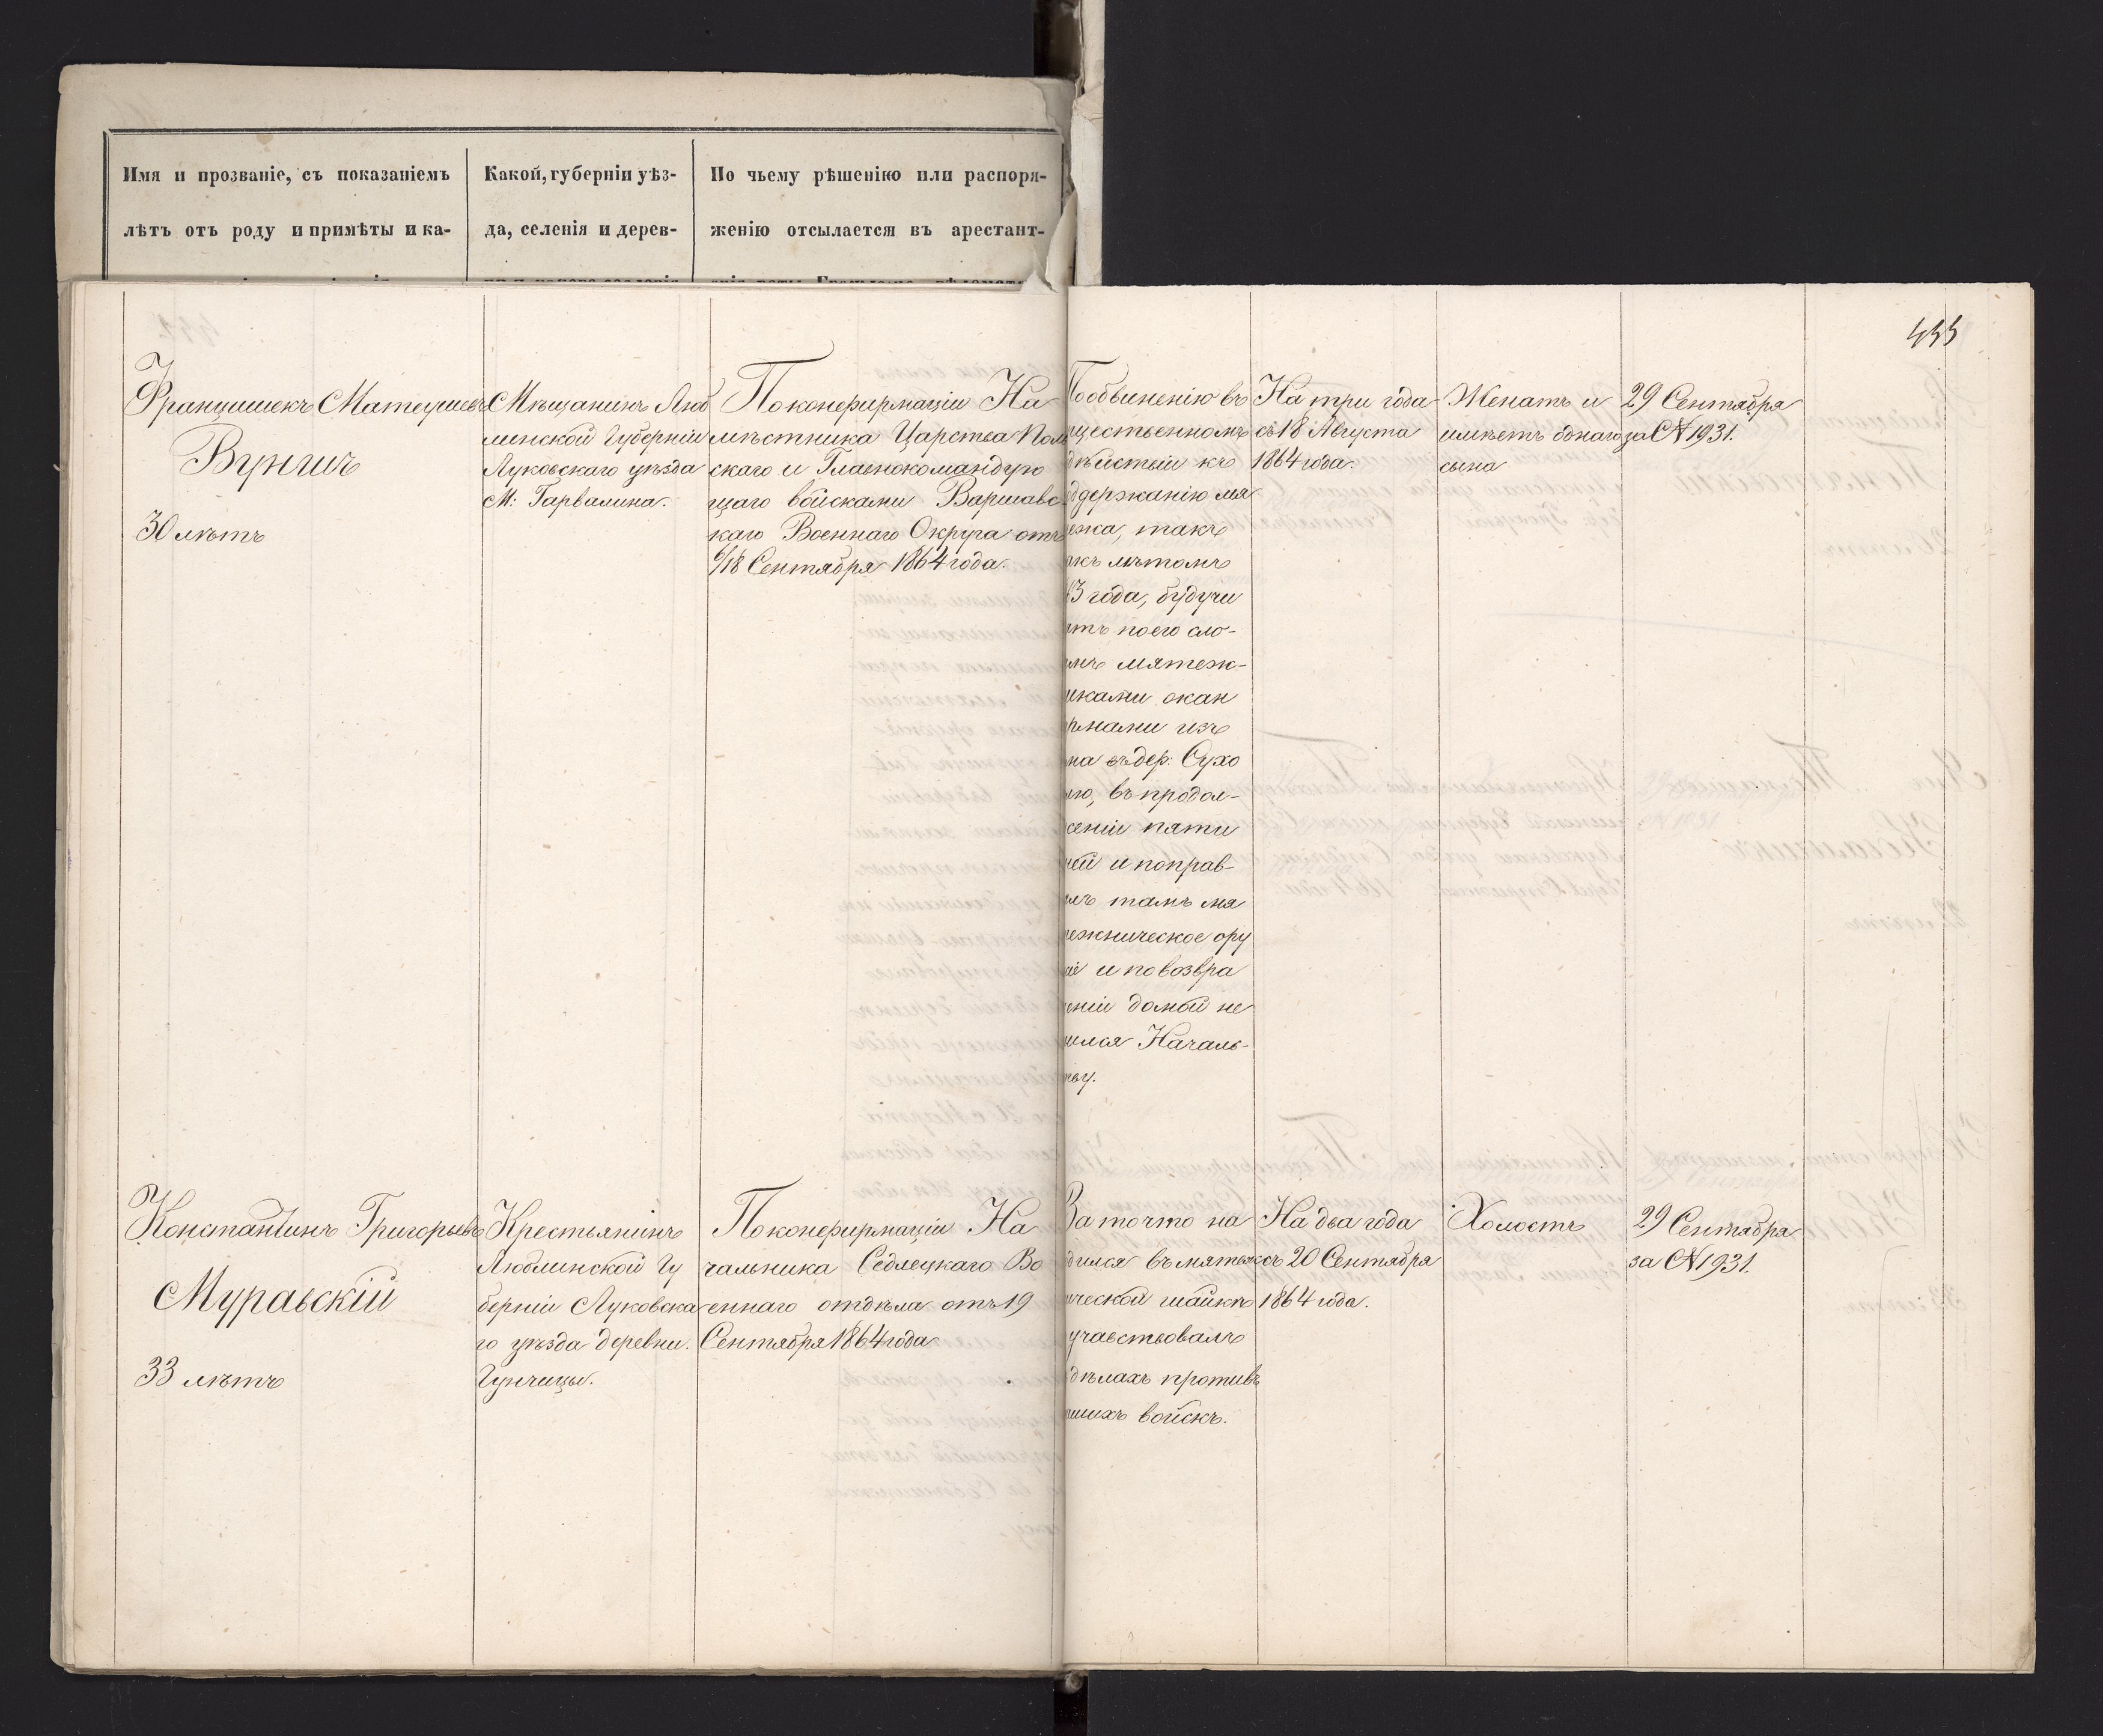 Имя и прозваніе, съ показаніемъ
лѣтъ отъ роду и примѣты и ка-
Какой, губерніи уѣз-
да, селенія и дерев-
По чьему рѣшенію или распоря-
женію отсылается въ арестант-
433
Францишекъ Матеушевъ
Вунгичъ
30 лѣтъ
Мѣщанинъ Люб
линской Губерніи
Луковскаго уѣзда
М: Гарвалина.
По конфирмаціи На
мѣстника Царства Поль
скаго и Главнокомандую
щаго войсками Варшавс
каго Военнаго Округа отъ
6/18 Сентября 1864 года.
По обвиненію въ
ущественномъ
дѣйствіи къ
ддержанію мя
ежа, такъ
акъ лѣтомъ
63 года, будучи
ятъ по его сло-
амъ мятеж-
иками жан
рмами изъ
ма въ дер: Сухо
лю, въ продол-
сеніи пяти
ней и поправ-
лъ тамъ мя
ежническое ору
іе и по возвра
еніи домой не
вился Началь-
тву.
На три года
съ 18 Августа
1864 года.
Женатъ и
имѣетъ однаго
сына
29 Сентября
за № 1931.
Константинъ Григорьевъ
Муравскій
33 лѣтъ
Крестьянинъ
Люблинской Гу
берніи Луковска
го уѣзда деревни.
Гунчицы.
По конфирмаціи На
чальника Седлецкаго Во
еннаго отдѣла отъ 19
Сентября 1864 года
За то что на
дился въ мятеж
ической шайкѣ
участвовалъ
дѣлахъ противъ
ашихъ войскъ.
На два года
съ 20 Сентября
1864 года.
Холостъ
29 Сентября
за № 1931.